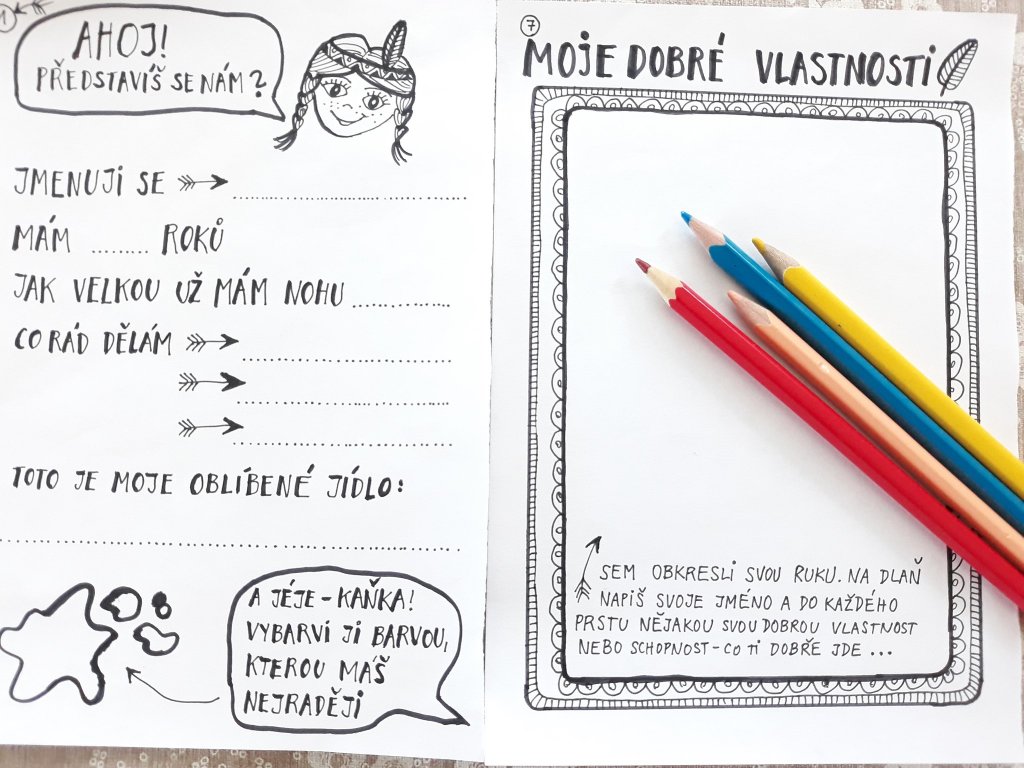 1
AHOJ!
PŘEDSTAVÍŠ SE NÁM?
JMENUJI SE
MÁM ......... ROKŮ
JAK VELKOU UŽ MÁM NOHU
CO RÁD DĚLÁM
TOTO JE MOJE OBLÍBENÉ JÍDLO:
A JÉJE - KAŇKA!
VYBARVI JI BARVOU,
KTEROU MÁŠ
NEJRADĚJI
7
MOJE DOBRÉ VLASTNOSTI
SEM OBKRESLI SVOU RUKU. NA DLAŇ
NAPIŠ SVOJE JMÉNO A DO KAŽDÉHO
PRSTU NĚJAKOU SVOU DOBROU VLASTNOST
NEBO SCHOPNOST - CO TI DOBŘE JDE ...